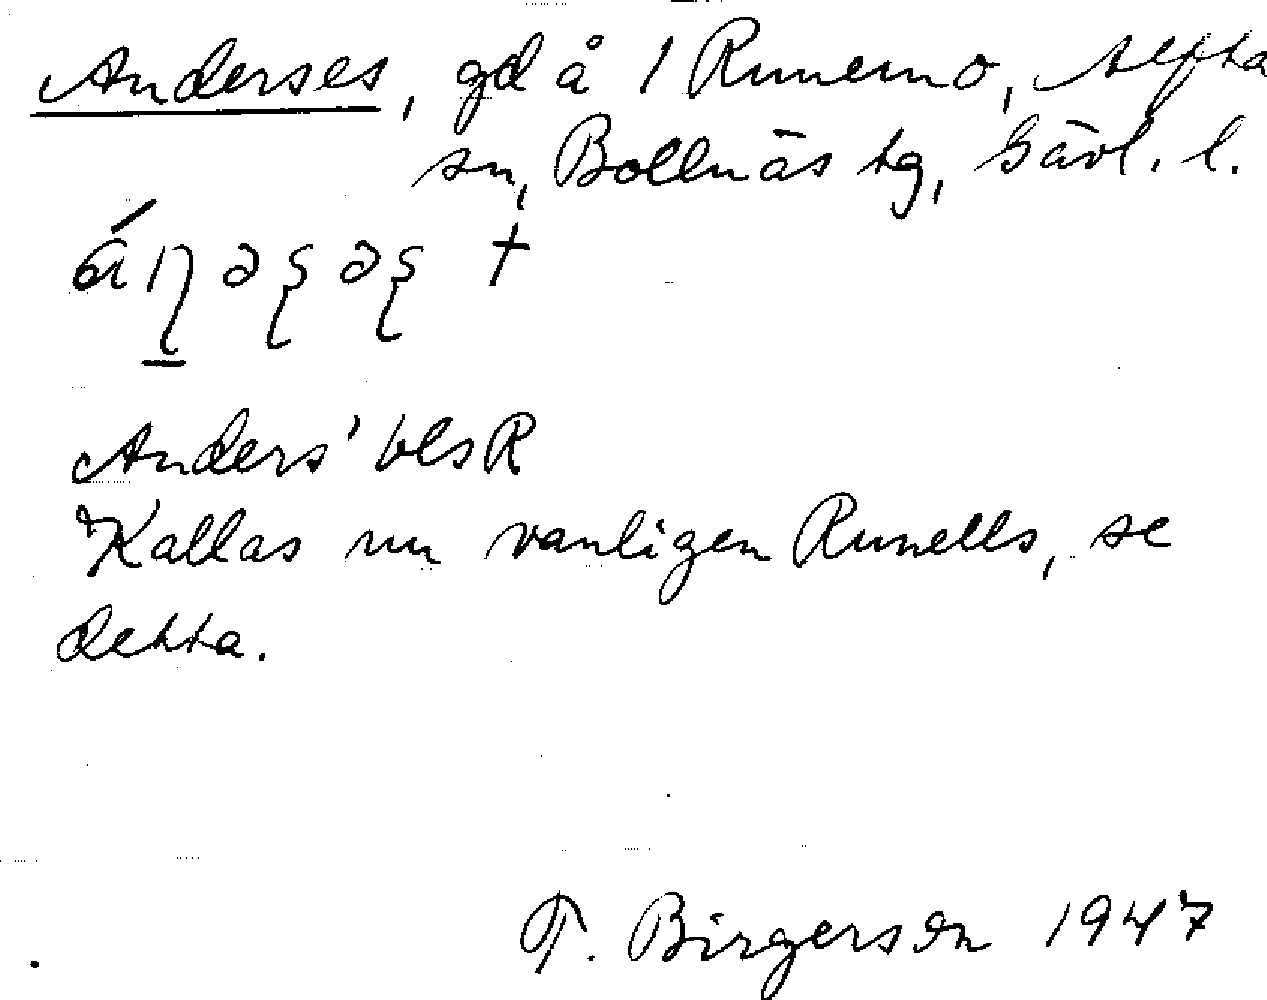 Anderses, gd å 1 Runemo, Alfta
sn, Bollnäs tg, Gävl. l.
Anders' blsR
Kallas nu vanligen Runells, se
detta.
T. Birgerson 1947